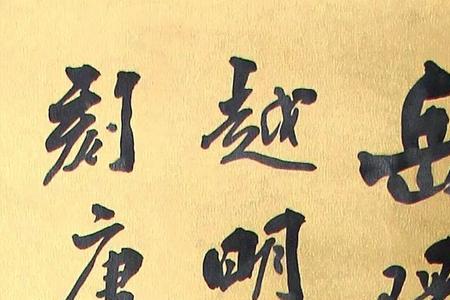 岳
越明
刻唐